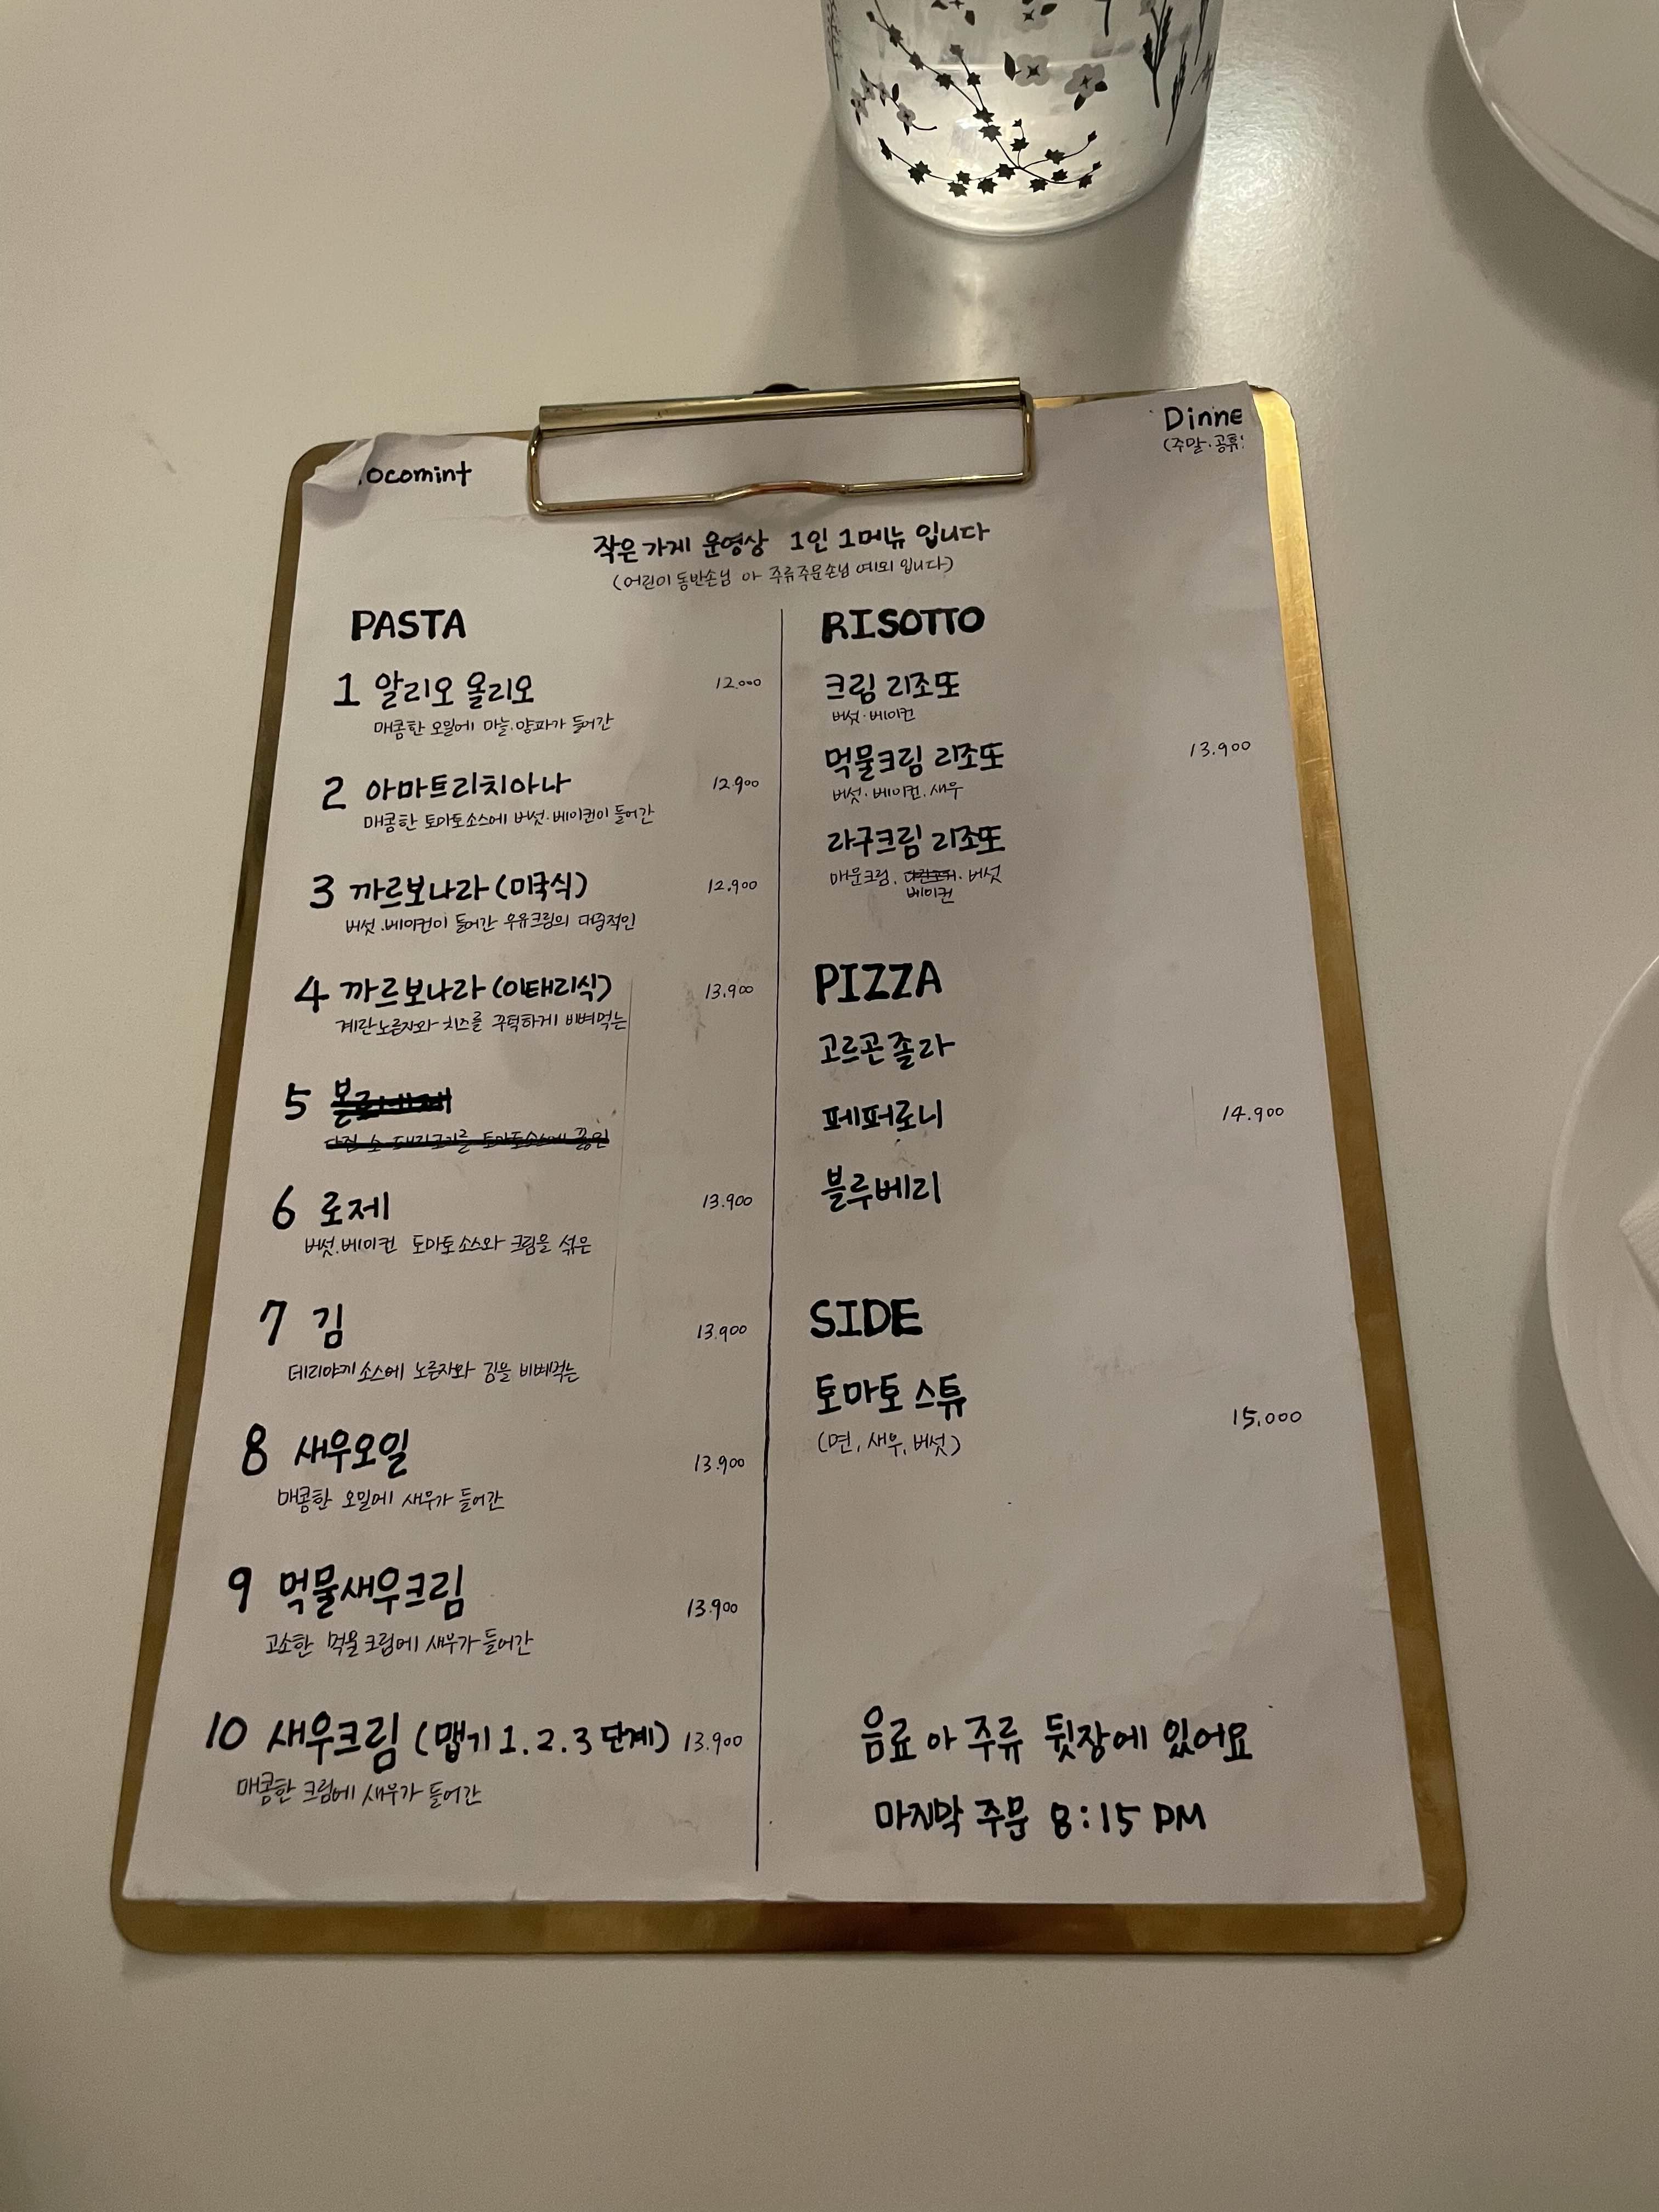 ocomint
Dinne
(주말·공휴
작은가게 운영상 1인 1메뉴 입니다
(어린이동반손님 아 주류주문손님 예외 입니다)
PASTA
1 알리오 올리오 12.000
매콤한 오일에 마늘.양파가 들어간
2 아마트리치아나 12.900
매콤한 토마토소스에 버섯·베이컨이 들어간
3 까르보나라 (미국식) 12.900
버섯.베이컨이 들어간 우유크림의 대중적인
4 까르보나라 (이태리식) 13.900
계란노른자와 치즈를 꾸덕하게 비벼먹는
5 볼로네제
다진 소 돼지고기를 토마토소스에 끓인
6 로제 13.900
버섯.베이컨 토마토소스와 크림을 섞은
7 김 13.900
데리야끼소스에 노른자와 김을 비벼먹는
8 새우오일 13.900
매콤한 오일에 새우가 들어간
9 먹물새우크림 13.900
고소한 먹물크림에 새우가 들어간
10 새우크림 (맵기 1.2.3 단계) 13.900
매콤한 크림에 새우가 들어간
RISOTTO
크림 리조또
버섯·베이컨
먹물크림 리조또 13.900
버섯·베이컨.새우
라구크림 리조또
매운크림, 버섯
베이컨
PIZZA
고르곤졸라
페퍼로니 14.900
블루베리
SIDE
토마토 스튜 15,000
(면, 새우, 버섯)
음료 아 주류 뒷장에 있어요
마지막 주문 8:15 PM